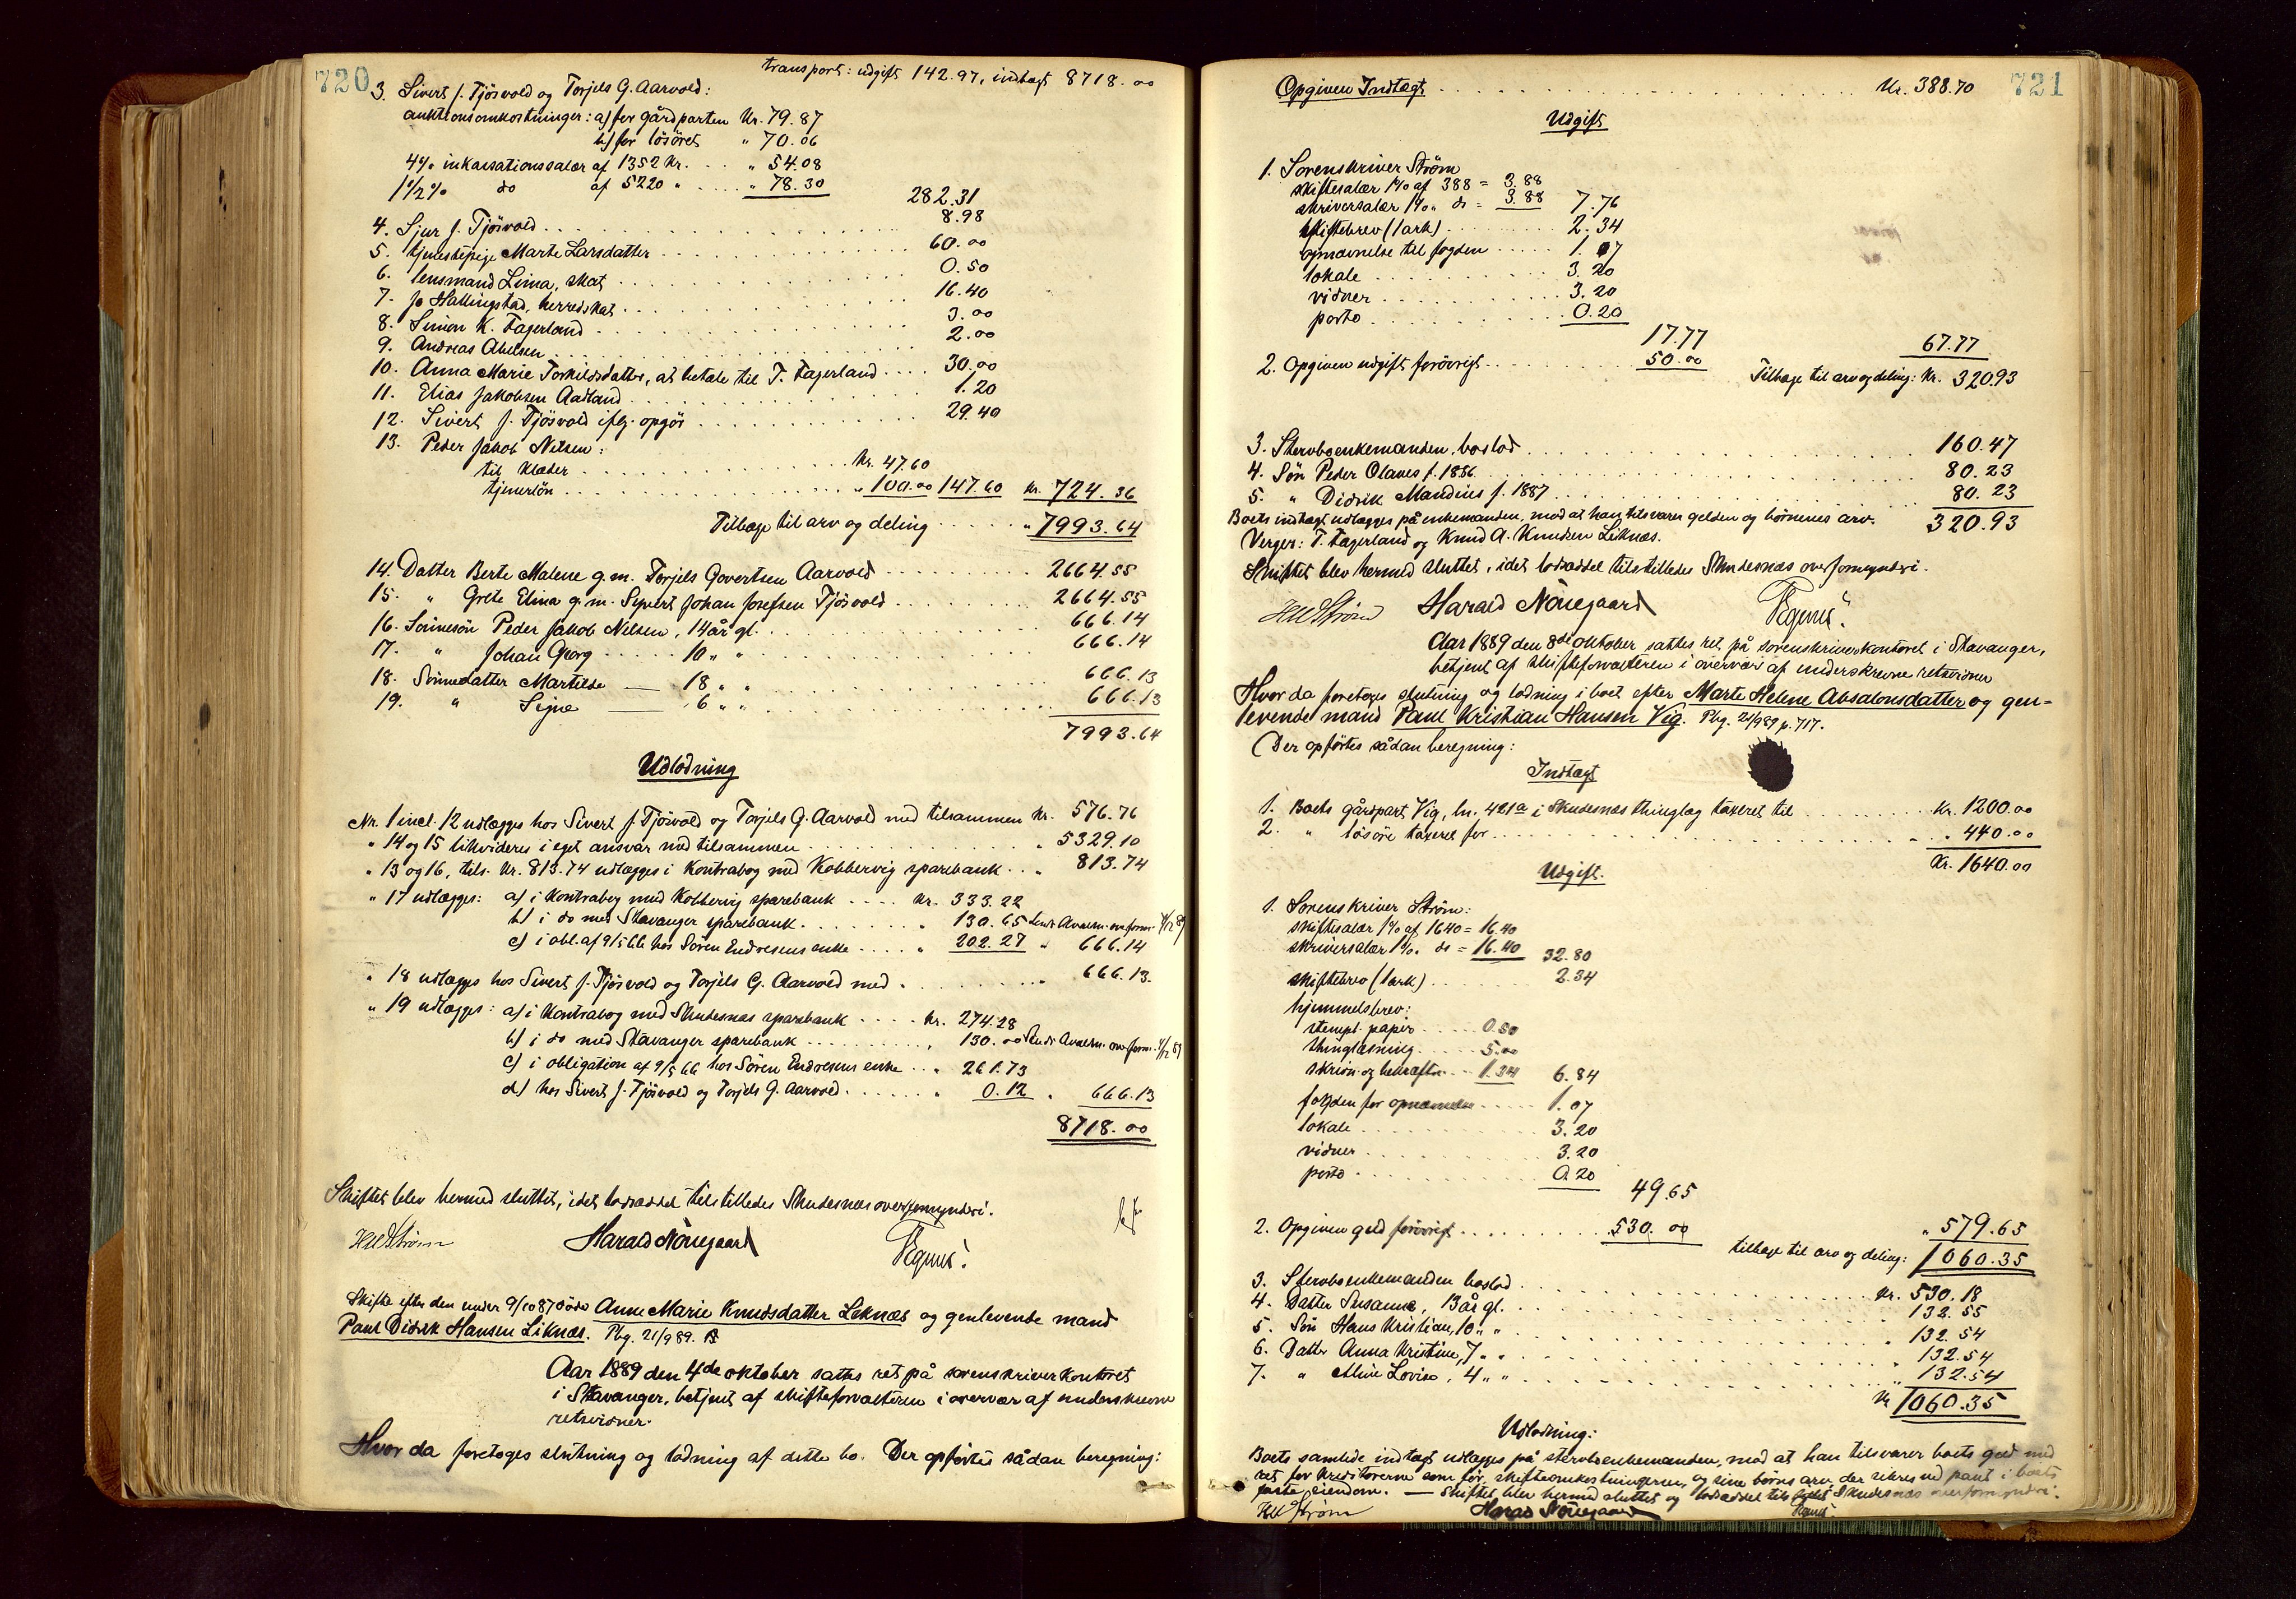 720
transport: udgift 142.97, indtægt 8718.00
3. Sivert J. Tjösvold og Torjels G. Aarvold:
auktionsomkostninger: a) for gårdparten Kr. 79.87
b) for lösöret " 70.06
4% inkassationssalær af 1352 Kr. . . " 54.08
1 1/2 % do af 5220 " . . . . " 78.30 282.31
4. Sjur J. Tjösvold . . . 8.98
5. tjenestepige Marte Larsdatter . . . 60.00
6. lensmand Lima, skat . . . 0.50
7. Jo Hallingstad, herredskat . . . 16.40
8. Simon K. Fagerland . . . 3.00
9. Andreas Abelsen . . . 2.00
10. Anna Marie Torkildsdatter, at betale til T. Fagerland . . . . 30.00
11. Elias Jakobsen Aadland . . . 1.20
12. Sivert J. Tjösvold iflg. opgör . . . 29.40
13. Peder Jakob Nilsen:
til klæder . . . Kr. 47.60
tjenerlön . . . " 100.00 147.60 Kr. 724.36
Tilbage til arv og deling . . . . . " 7993.64
14. Datter Berte Malene g. m. Torjels Govertsen Aarvold . . . 2664.55
15. " Grete Elina g. m. Syvert Johan Josefsen Tjösvold . . . 2664.55
16. Sönnesön Peder Jakob Nilsen, 14 år gl. . . . 666.14
17. " Johan Georg . . . . . 10 " " . . . 666.14
18. Sönnedatter Martilde — 18 " " . . . 666.13
19. " Signe — 6 " " . . . 666.13
7993.64
Udlodning
Nr. 1 incl. 12 udlægges hos Sivert J. Tjösvold og Torjels G. Aarvold med tilsammen Kr. 576.76
" 14 og 15 likvideres i eget ansvar med tilsammen . . . " 5329.10
" 13 og 16, tils. Kr. 813.74 udlægges i Kontrabog med Kobbervig sparebank . . . " 813.74
" 17 udlægges: a) i Kontrabog med Kobbervig sparebank . . . . Kr. 333.22
b) i do med Stavanger sparebank . . . " 130.65
c) i obl. af 9/5 66 hos Sören Endresens enke . . . . " 202.27 " 666.14
" 18 udlægges hos Sivert J. Tjösvold og Torjels G. Aarvold med . . . " 666.13.
" 19 udlægges: a) i Kontrabog med Skudesnæs sparebank . . . . Kr. 274.28
b) i do med Stavanger sparebank . . . " 130.00
c) i obligation af 9/5 66 hos Sören Endresens enke . . " 261.73
d) hos Sivert J. Tjösvold og Torjels G. Aarvold . . . " 0.12 " 666.13
8718.00
Skiftet blev hermed sluttet, idet lodseddel tilstilledes Skudesnæs overformynderi.
HWStröm Harald Nörregaard
Skifte efter den under 9/10 87 döde Anne Marie Knudsdatter Liknæs og genlevende mand
Paul Didrik Hansen Liknæs. Pbg. 21/9 89.
Aar 1889 den 4de oktober sattes ret på sorenskriverkontoret
i Stavanger, betjent af skifteforvalteren i overvær af underskrevne
retsvidner.
Hvor da foretoges slutning og lodning af dette bo. Der opförtes sådan beregning:
721
Opgiven Indtægt . . . Kr. 388.70
Udgift
1. Sorenskriver Ström
skiftesalær 1% af 388 = 3.88
skriversalær 1% " do = 3.88 7.76
skiftebrev (1 ark) . . . 2.34
opnævnelse til fogden . . . . . 1.07
lokale . . . 3.20
vidner . . . 3.20
porto . . . 0.20
17.77 67.77
2. Opgiven udgift forövrigt . . . 50.00
Tilbage til arv og deling: Kr. 320.93
3. Sterboenkemanden, boslod . . . 160.47
4. Sön Peder Olaves f. 1886. . . . 80.23
5. " Didrik Mandius f. 1887 . . . 80.23
Boets indtægt udlægges på enkemanden, mod at han tilsvarer gelden og börnenes arv. 320.93
Verger: T. Fagerland og Knud A. Knudsen Liknæs.
Skiftet blev hermed sluttet, idet lodseddel tilstilledes Skudesnæs overformynderi.
HWStröm Harald Nörregaard
Aar 1889 den 8de oktober sattes ret på sorenskriverkontoret i Stavanger,
betjent af skifteforvalteren i overvær af underskrevne retsvidner
Hvor da foretoges slutning og lodning i boet efter Marte Helene Absalonsdatter og gen=
levende mand Paul Kristian Hansen Vig. Pbg. 21/9 89 p. 717.
Der opförtes sådan beregning:
Indtægt
1. Boets gårdpart Vig, ln. 421a i Skudesnæs thinglag taxeret til . . . Kr. 1200.00
2. " lösöre taxeret for . . . " 440.00
Kr. 1640.00
Udgift.
1. Sorenskriver Ström:
skiftesalær 1% af 1640 = 16.40
skriversalær 1% " do = 16.40 32.80
skiftebrev (1 ark) . . . 2.34
hjemmelsbrev:
stempl. papir . . . . . 0.50
thinglæsning . . . . . 5.00
skrivn. og bekræftn. . . 1.34 6.84
fogden for opnævnelse . . . . . 1.07
lokale . . . 3.20
vidner . . . 3.20
porto . . . 0.20
49.65
2. Opgiven geld forövrigt . . . 530.00 " 579.65
tilbage til arv og deling: 1060.35
3. Sterboenkemanden boslod . . . Kr. 530.18
4. Datter Susanne, 13 år gl. . . . 132.55
5. Sön Hans Kristian, 10 " " . . . " 132.54
6. Datter Anna Kristine, 7 " " . . . " 132.54
7. " Aline Lovise, 4 " " . . . " 132.54
Kr 1060.35
Udlodning:
Boets samlede indtægt udlægges på sterboenkemanden, mod at han tilsvarer boets geld med
ret for kreditorerne som för, skifteomkostningerne, og sine börns arv, der sikres ved pant i boets
faste eiendom. — Skiftet blev hermed sluttet og lodseddel tilstillet Skudesnæs overformynderi.
HWStröm Harald Nörregaard